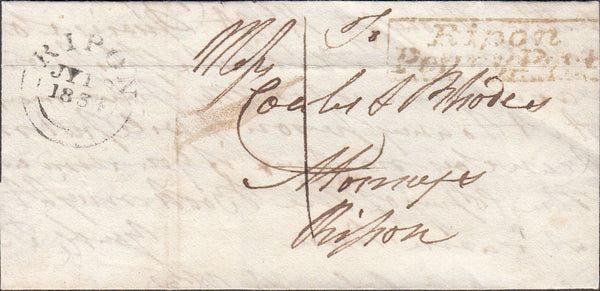 RIPON
JY 1
1834
Ripon
Penny Post
To
Messrs
Coates & Rhodes
Attorneys
Ripon